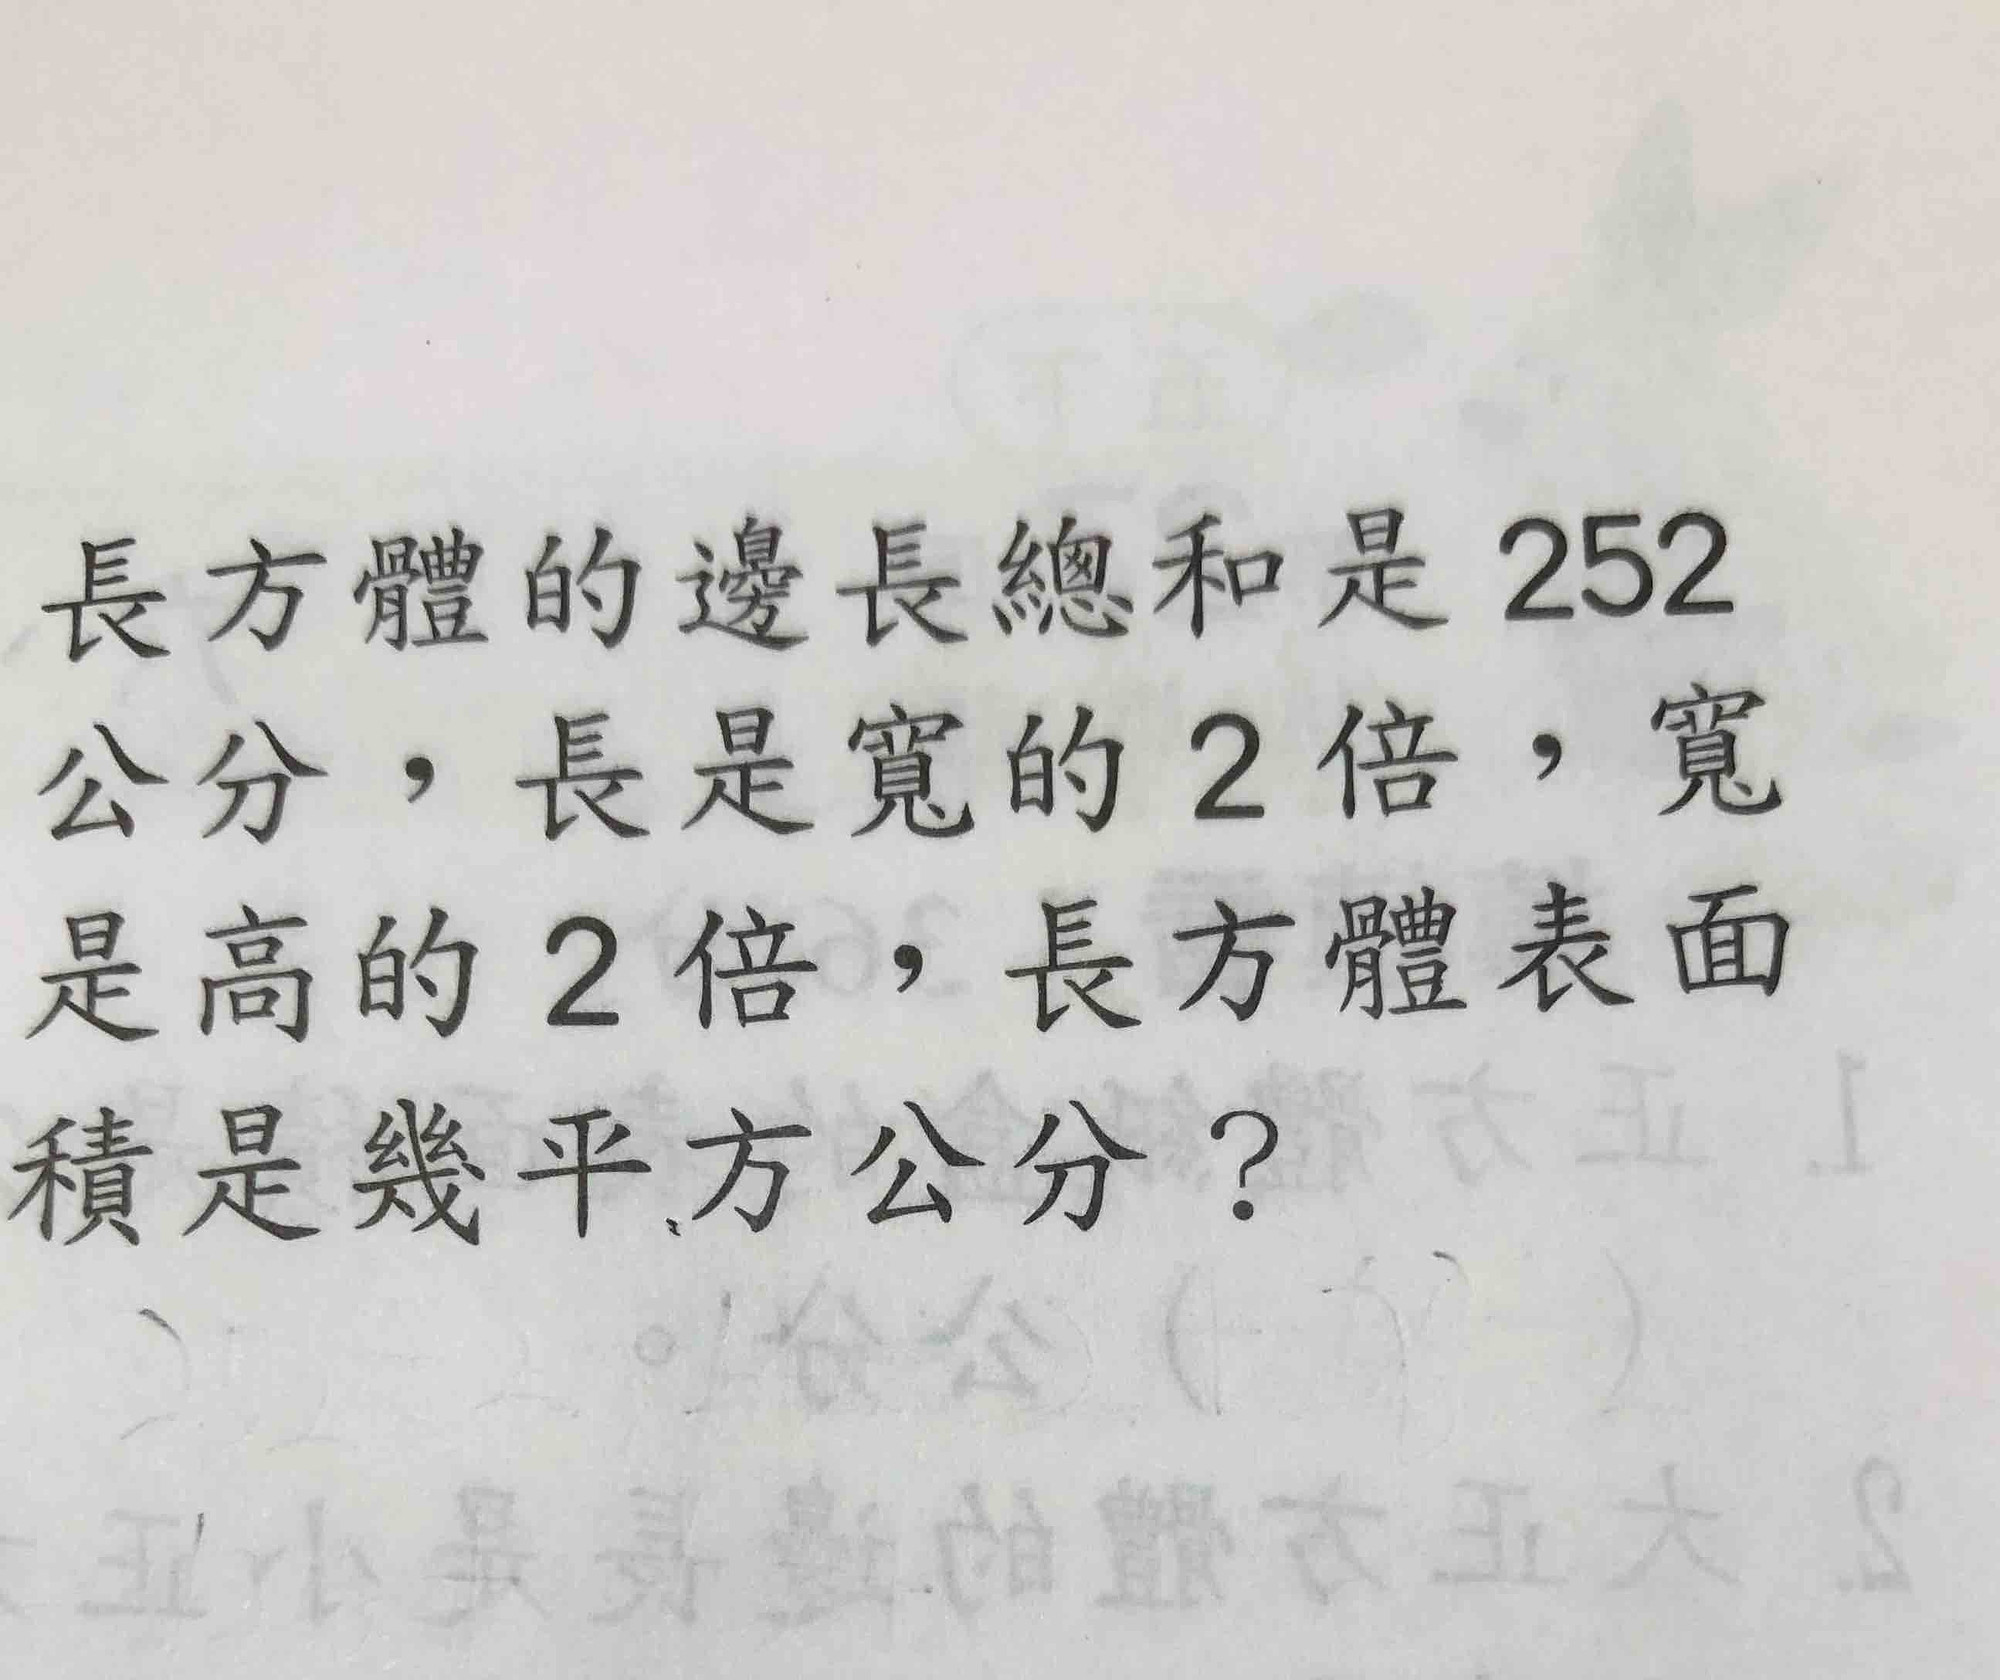 長方體的邊長總和是252
公分，長是寬的2倍，寬
是高的2倍，長方體表面
積是幾平方公分？